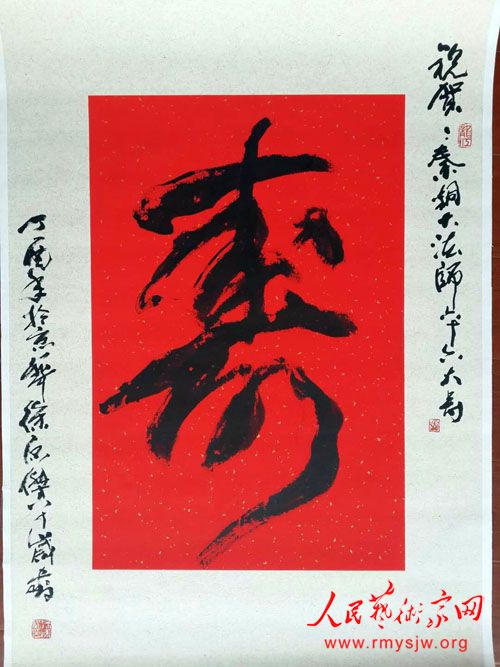 祝賀：秦大法師六十六大寿
壽
丁酉年於京華徐傑八十歲翁
人民藝術家网
www.rmysjw.org